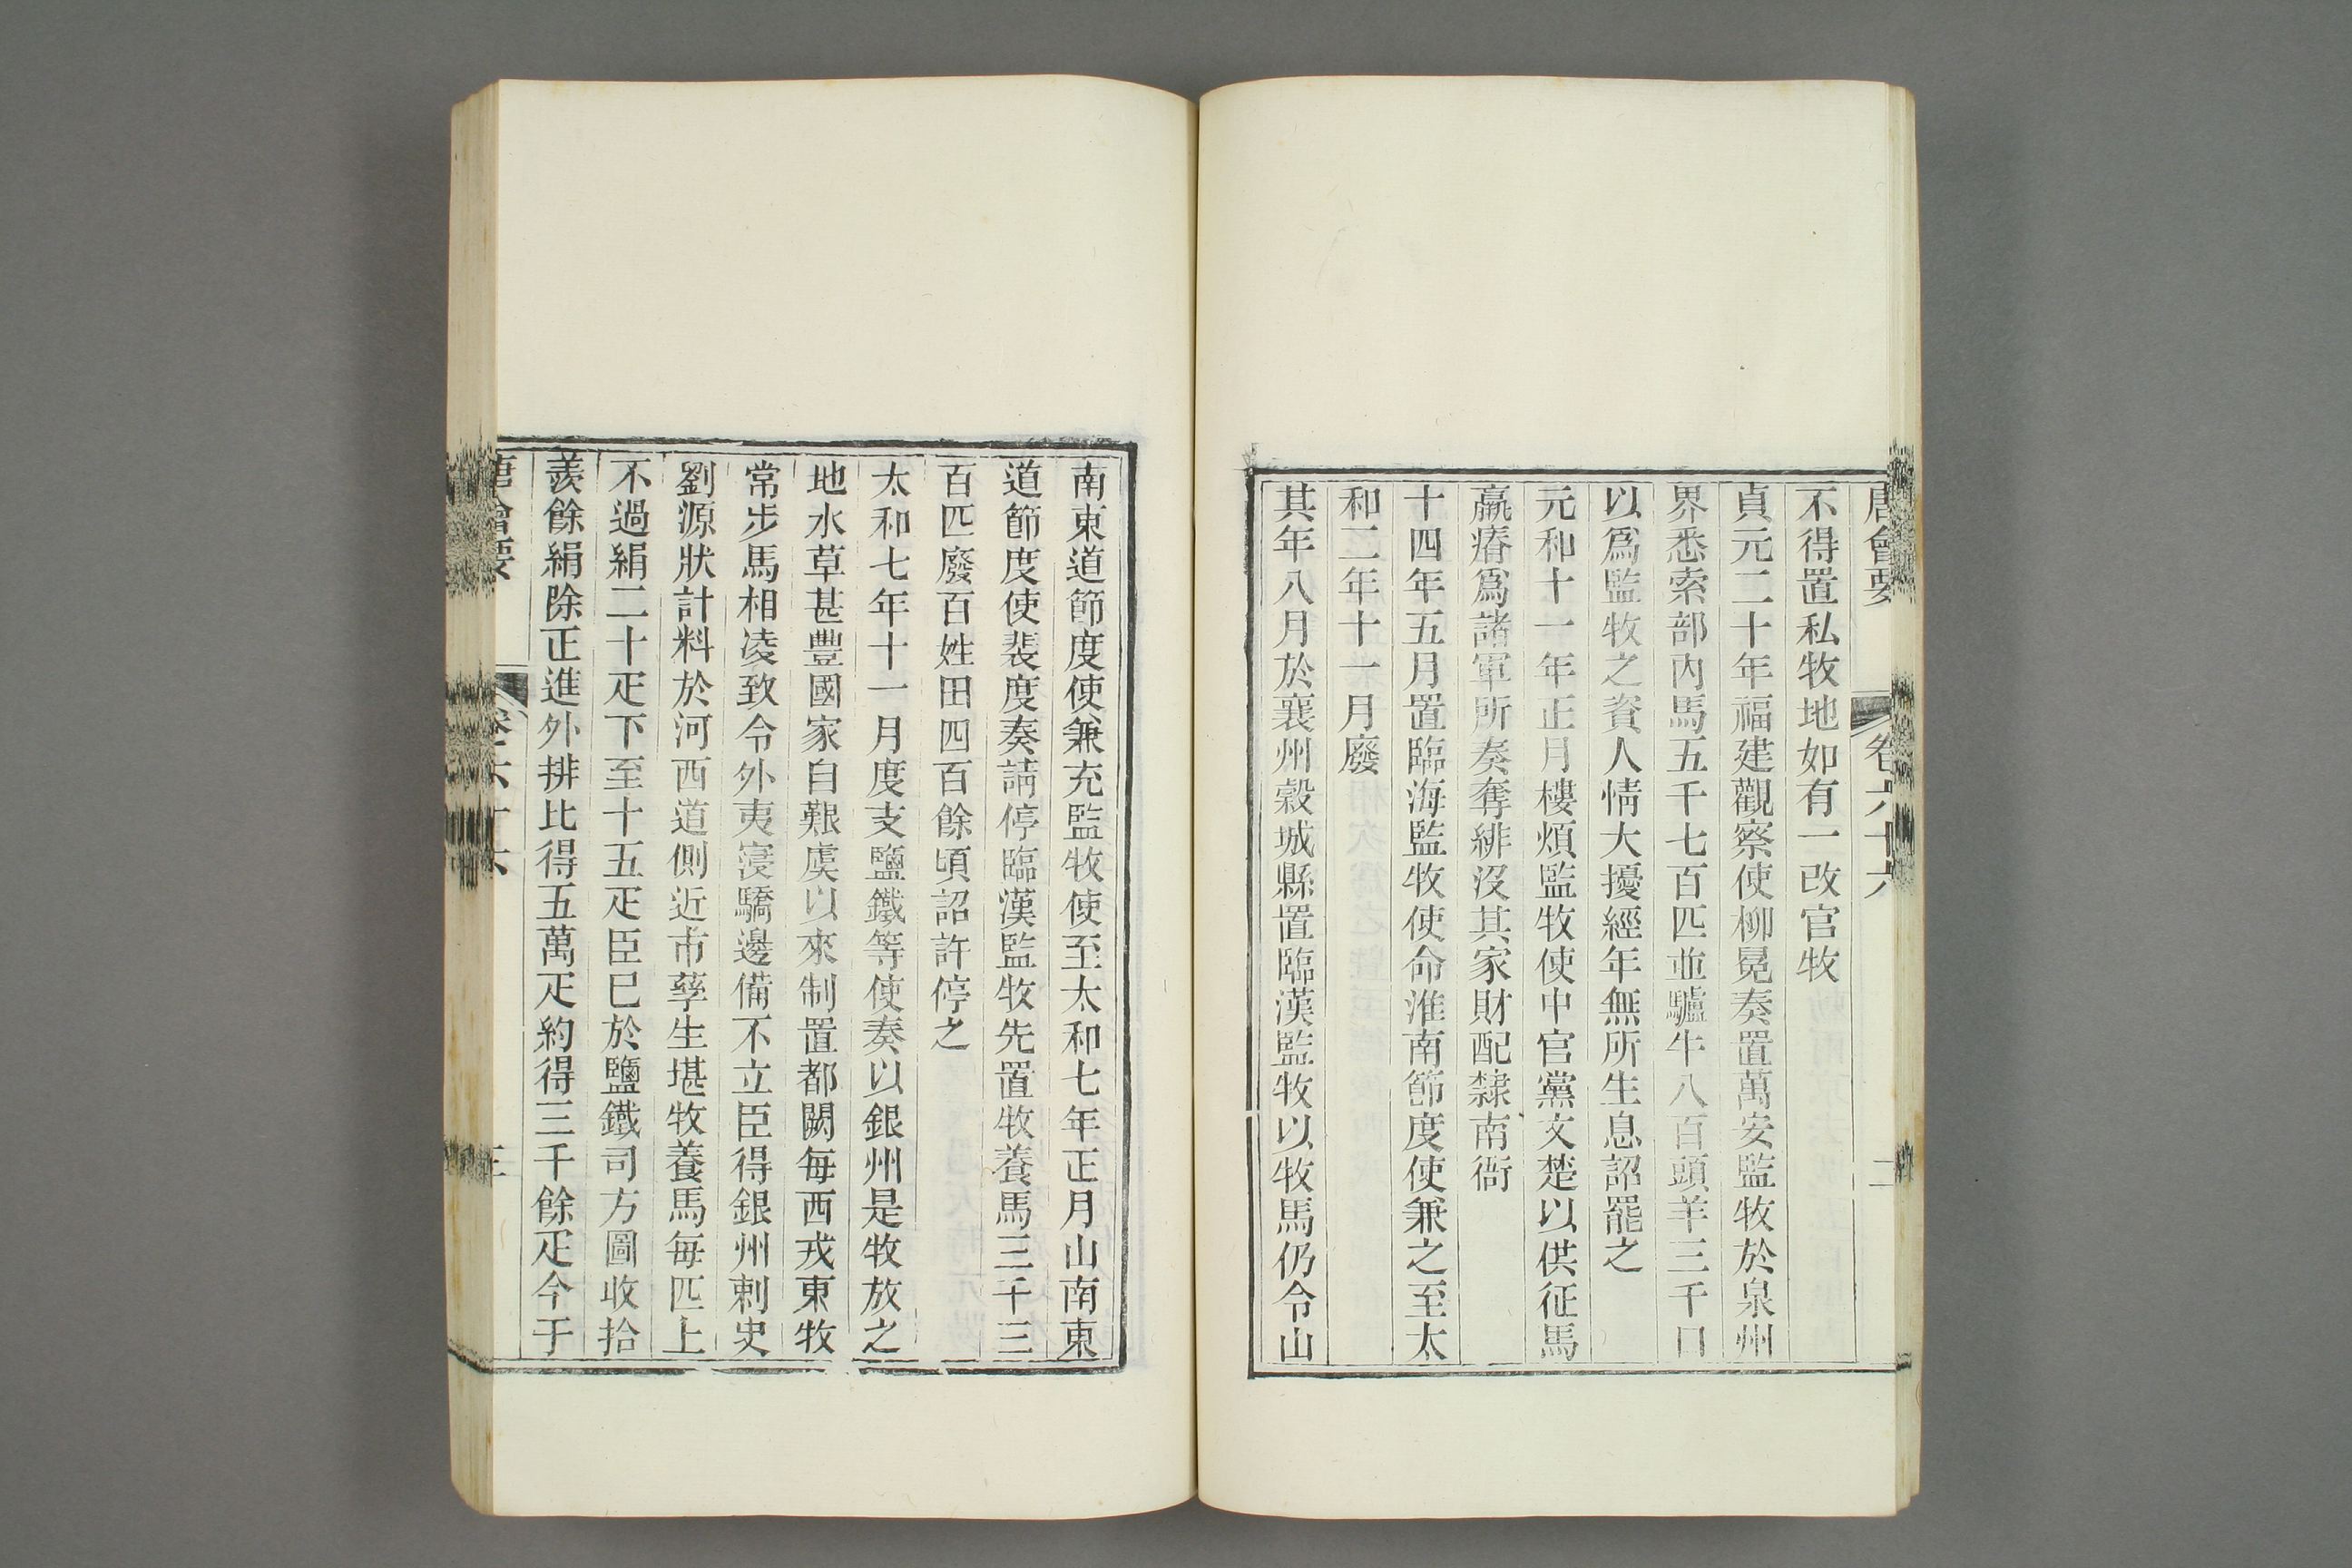 唐會要 卷六十六 二
不得置私牧地如有一改官牧
貞元二十年福建觀察使柳冕奏置萬安監牧於泉州
界悉索部內馬五千七百匹並驢牛八百頭羊三千口
以爲監牧之資人情大擾經年無所生息詔罷之
元和十一年正月樓煩監牧使中官黨文楚以供征馬
羸瘠爲諸軍所奏奪緋沒其家財配隸南衙
十四年五月置臨海監牧使命淮南節度使兼之至太
和二年十一月廢
其年八月於襄州穀城縣置臨漢監牧以牧馬仍令山
南東道節度使兼充監牧使至太和七年正月山南東
道節度使裴度奏請停臨漢監牧先置牧養馬三千三
百匹廢百姓田四百餘頃詔許停之
太和七年十一月度支鹽鐵等使奏以銀州是牧放之
地水草甚豐國家自艱虞以來制置都闕每西戎東牧
常步馬相凌致令外夷寖驕邊備不立臣得銀州刺史
劉源狀計料於河西道側近市孳生堪牧養馬每匹上
不過絹二十疋下至十五疋臣已於鹽鐵司方圓收拾
羨餘絹除正進外排比得五萬疋約得三千餘疋今于
唐會要 卷六十六 三